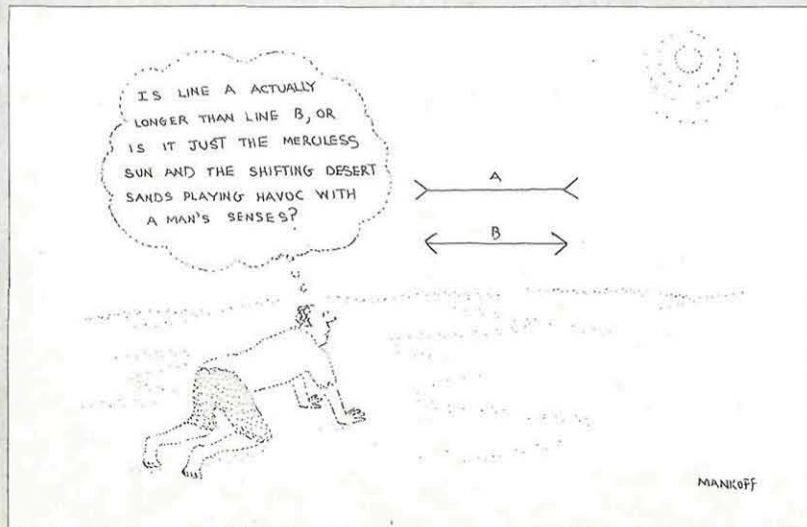 IS LINE A ACTUALLY
LONGER THAN LINE B, OR
IS IT JUST THE MERCILESS
SUN AND THE SHIFTING DESERT
SANDS PLAYING HAVOC WITH
A MAN'S SENSES?
A
B
MANKOFF